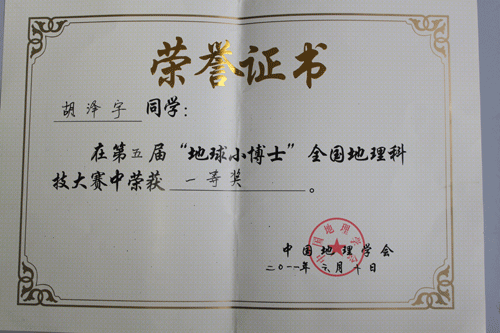 荣誉证书
胡泽宇 同学：
在第五届“地球小博士”全国地理科
技大赛中荣获 一等奖 。
中国地理学会
二〇一一年六月 日
中国地理学会